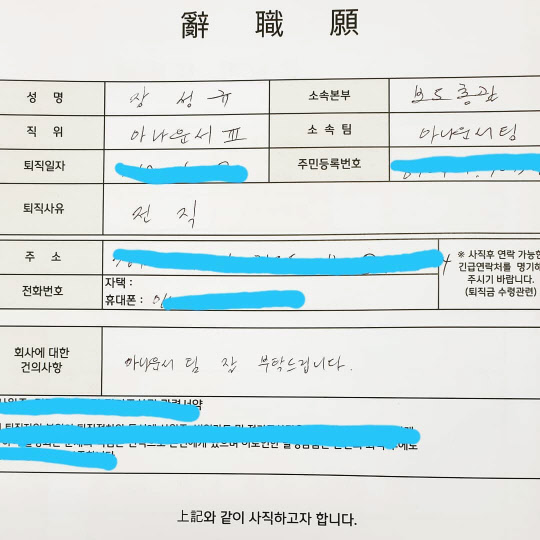 辭 職 願
성 명 장 성 규 소속본부 보도총괄
직 위 아나운서 Ⅲ 소 속 팀 아나운서팀
퇴직일자 주민등록번호
퇴직사유 전 직
주 소 ※ 사직후 연락 가능한
긴급연락처를 명기하
주시기 바랍니다.
(퇴직금 수령관련)
전화번호 자택 :
휴대폰 :
회사에 대한
건의사항
아나운서 팀 잘 부탁드립니다.
上記와 같이 사직하고자 합니다.